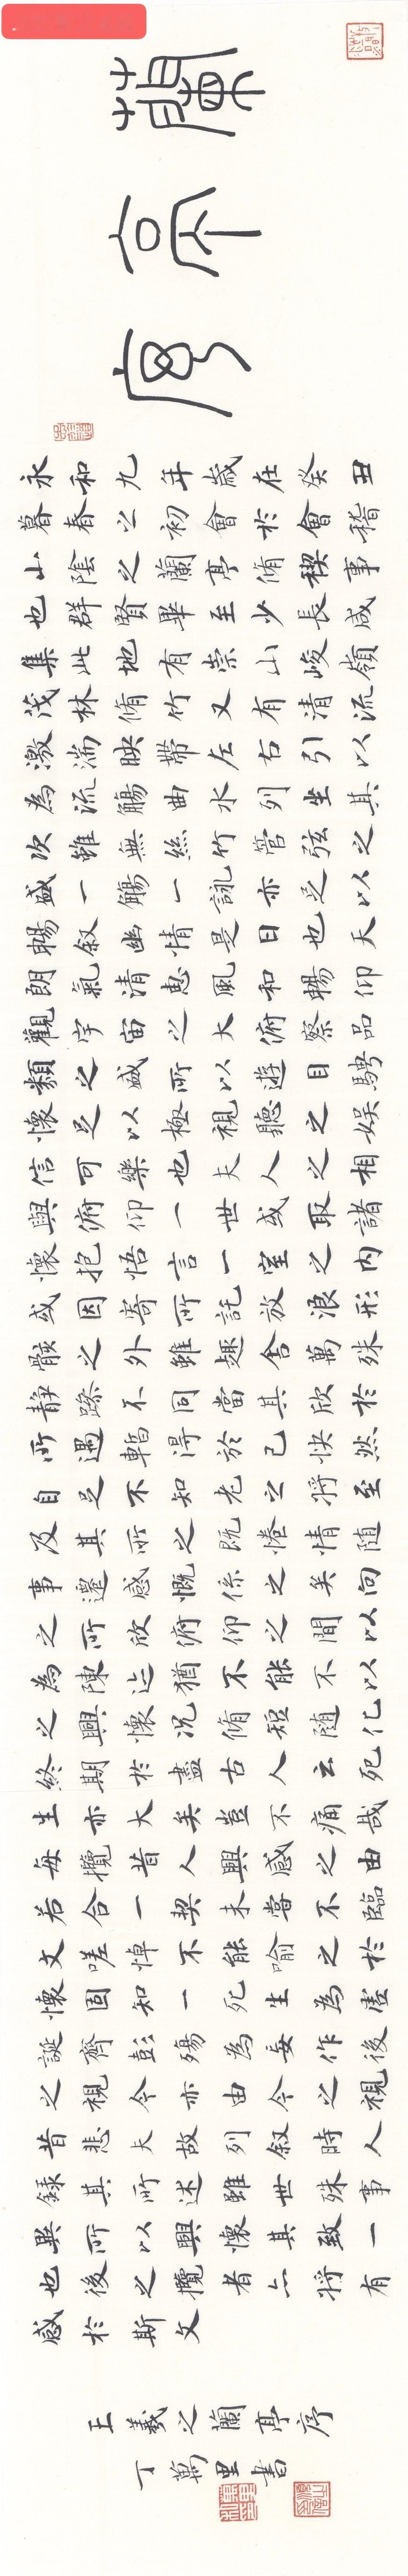 蘭亭序
永和九年歲在癸丑
暮春之初會於會稽
山陰之蘭亭脩禊事
也群賢畢至少長咸
集此地有崇山峻嶺
茂林脩竹又有清流
激湍映帶左右引以
為流觴曲水列坐其
次雖無絲竹管弦之
盛一觴一詠亦足以
暢敘幽情是日也天
朗氣清惠風和暢仰
觀宇宙之大俯察品
類之盛所以遊目騁
懷足以極視聽之娛
信可樂也夫人之相
與俯仰一世或取諸
懷抱悟言一室之內
或因寄所託放浪形
骸之外雖趣舍萬殊
靜躁不同當其欣
所遇暫得於己快然
自足不知老之將至
及其所之既惓情隨
事遷感慨係之矣向
之所欣俯仰之間以
為陳迹猶不能不以
之興懷況脩短隨化
終期於盡古人云死
生亦大矣豈不痛哉
每攬昔人興感之由
若合一契未嘗不臨
文嗟悼不能喻之於
懷固知一死生為虛
誕齊彭殤為妄作後
之視今亦由今之視
昔悲夫故列敘時人
錄其所述雖世殊事
異所以興懷其致一
也後之攬者亦將有
感於斯文
王羲之蘭亭序
丁萬里書